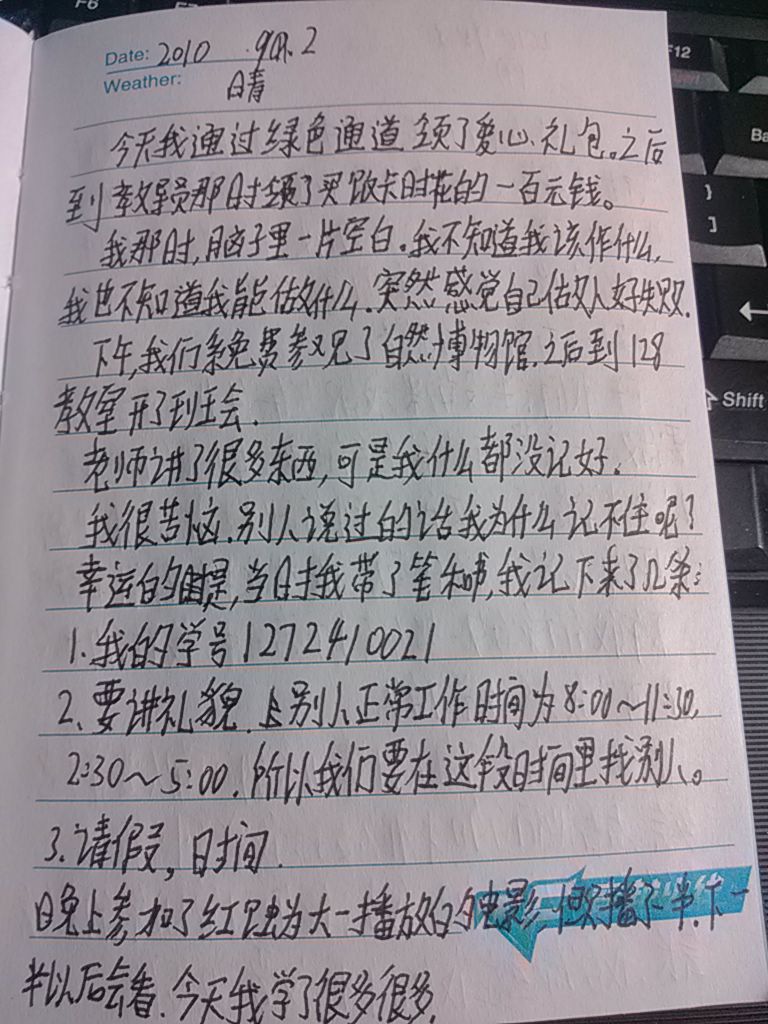 Date: 2010 . 9月. 2
Weather: 晴
今天我通过绿色通道领了爱心礼包。之后
到教导员那时领了买饭卡时花的一百元钱。
我那时,脑子里一片空白。我不知道我该作什么,
我也不知道我能做什么,突然感觉自己做人好失败.
下午,我们免费参观了自然博物馆.之后到128
教室开了班会.
老师讲了很多东西,可是我什么都没记好.
我很苦恼.别人说过的话我为什么记不住呢?
幸运的是,当时我带了笔和,我记下来了几条:
1.我的学号1272410021
2、要讲礼貌.别人正常工作时间为8:00~11:30,
2:30~5:00.所以我们要在这个段时间里找别人。
3.请假,时间.
晚上参加了红为大一播放的电影,但只播了一半.下一
半以后会看.今天我学了很多很多.
F6
F12
Ba
}
]
Shift